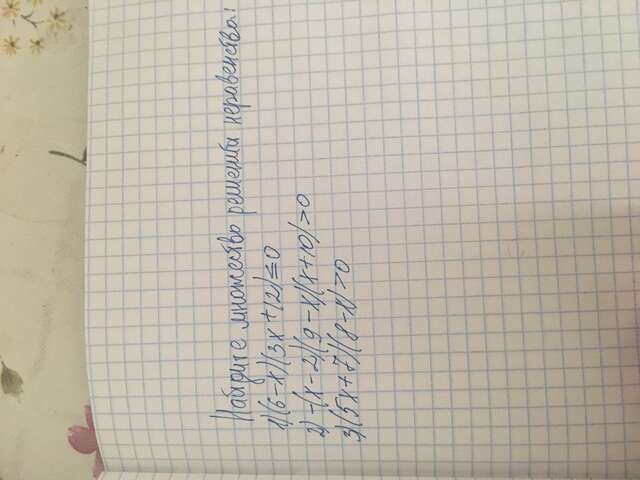 Найдите множество решений неравенства:
1) (6-x)(3x+12)≤0
2) -(x-2)(9-x)(x+10)>0
3) (5x+7)(8-x)>0